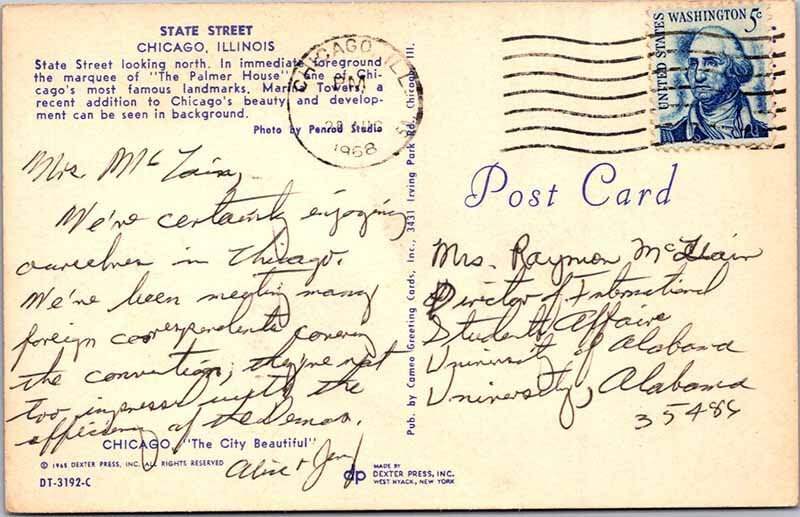 STATE STREET
CHICAGO, ILLINOIS
State Street looking north. In immediate foreground
the marquee of "The Palmer House" one of Chi-
cago's most famous landmarks. Marina Towers, a
recent addition to Chicago's beauty and develop-
ment can be seen in background.
Photo by Penrod Studio
Mrs. McLain,
We've certainly enjoying
ourselves in Chicago.
We've been meeting many
foreign correspondents covering
the convention; they're not
too impressed with the
efficiency of the Demos.
Alice + Jerry
CHICAGO, "The City Beautiful"
© 1965 DEXTER PRESS, INC. ALL RIGHTS RESERVED
DT-3192-C
Pub. by Cameo Greeting Cards, Inc., 3431 Irving Park Rd., Chicago, Ill.
CHICAGO, ILL.
PM
28 AUG
1968
UNITED STATES
WASHINGTON 5c
Post Card
Mrs. Raymon McLain
Director of International
Student Affairs
University of Alabama
University, Alabama
35486
dp
MADE BY
DEXTER PRESS, INC.
WEST NYACK, NEW YORK